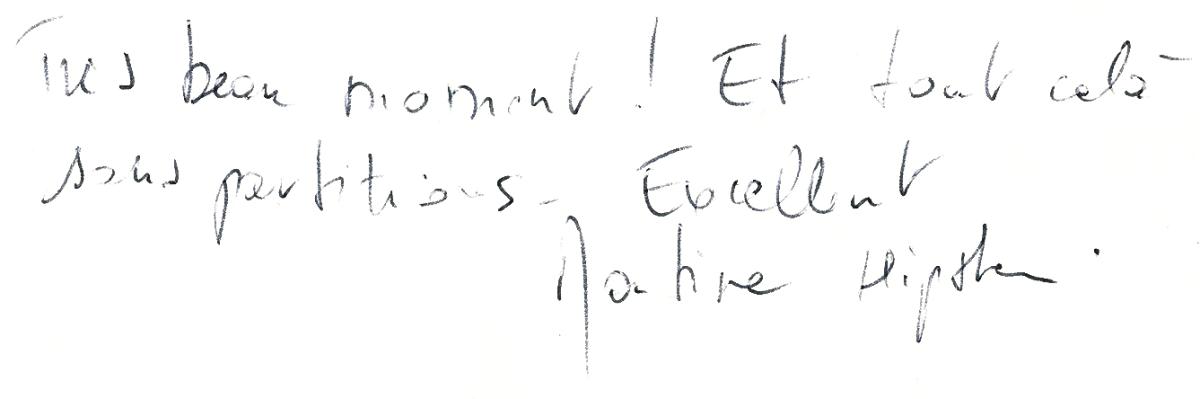 Très beau moment ! Et tout celà
sans partitions. Excellent
Martine Hipster.